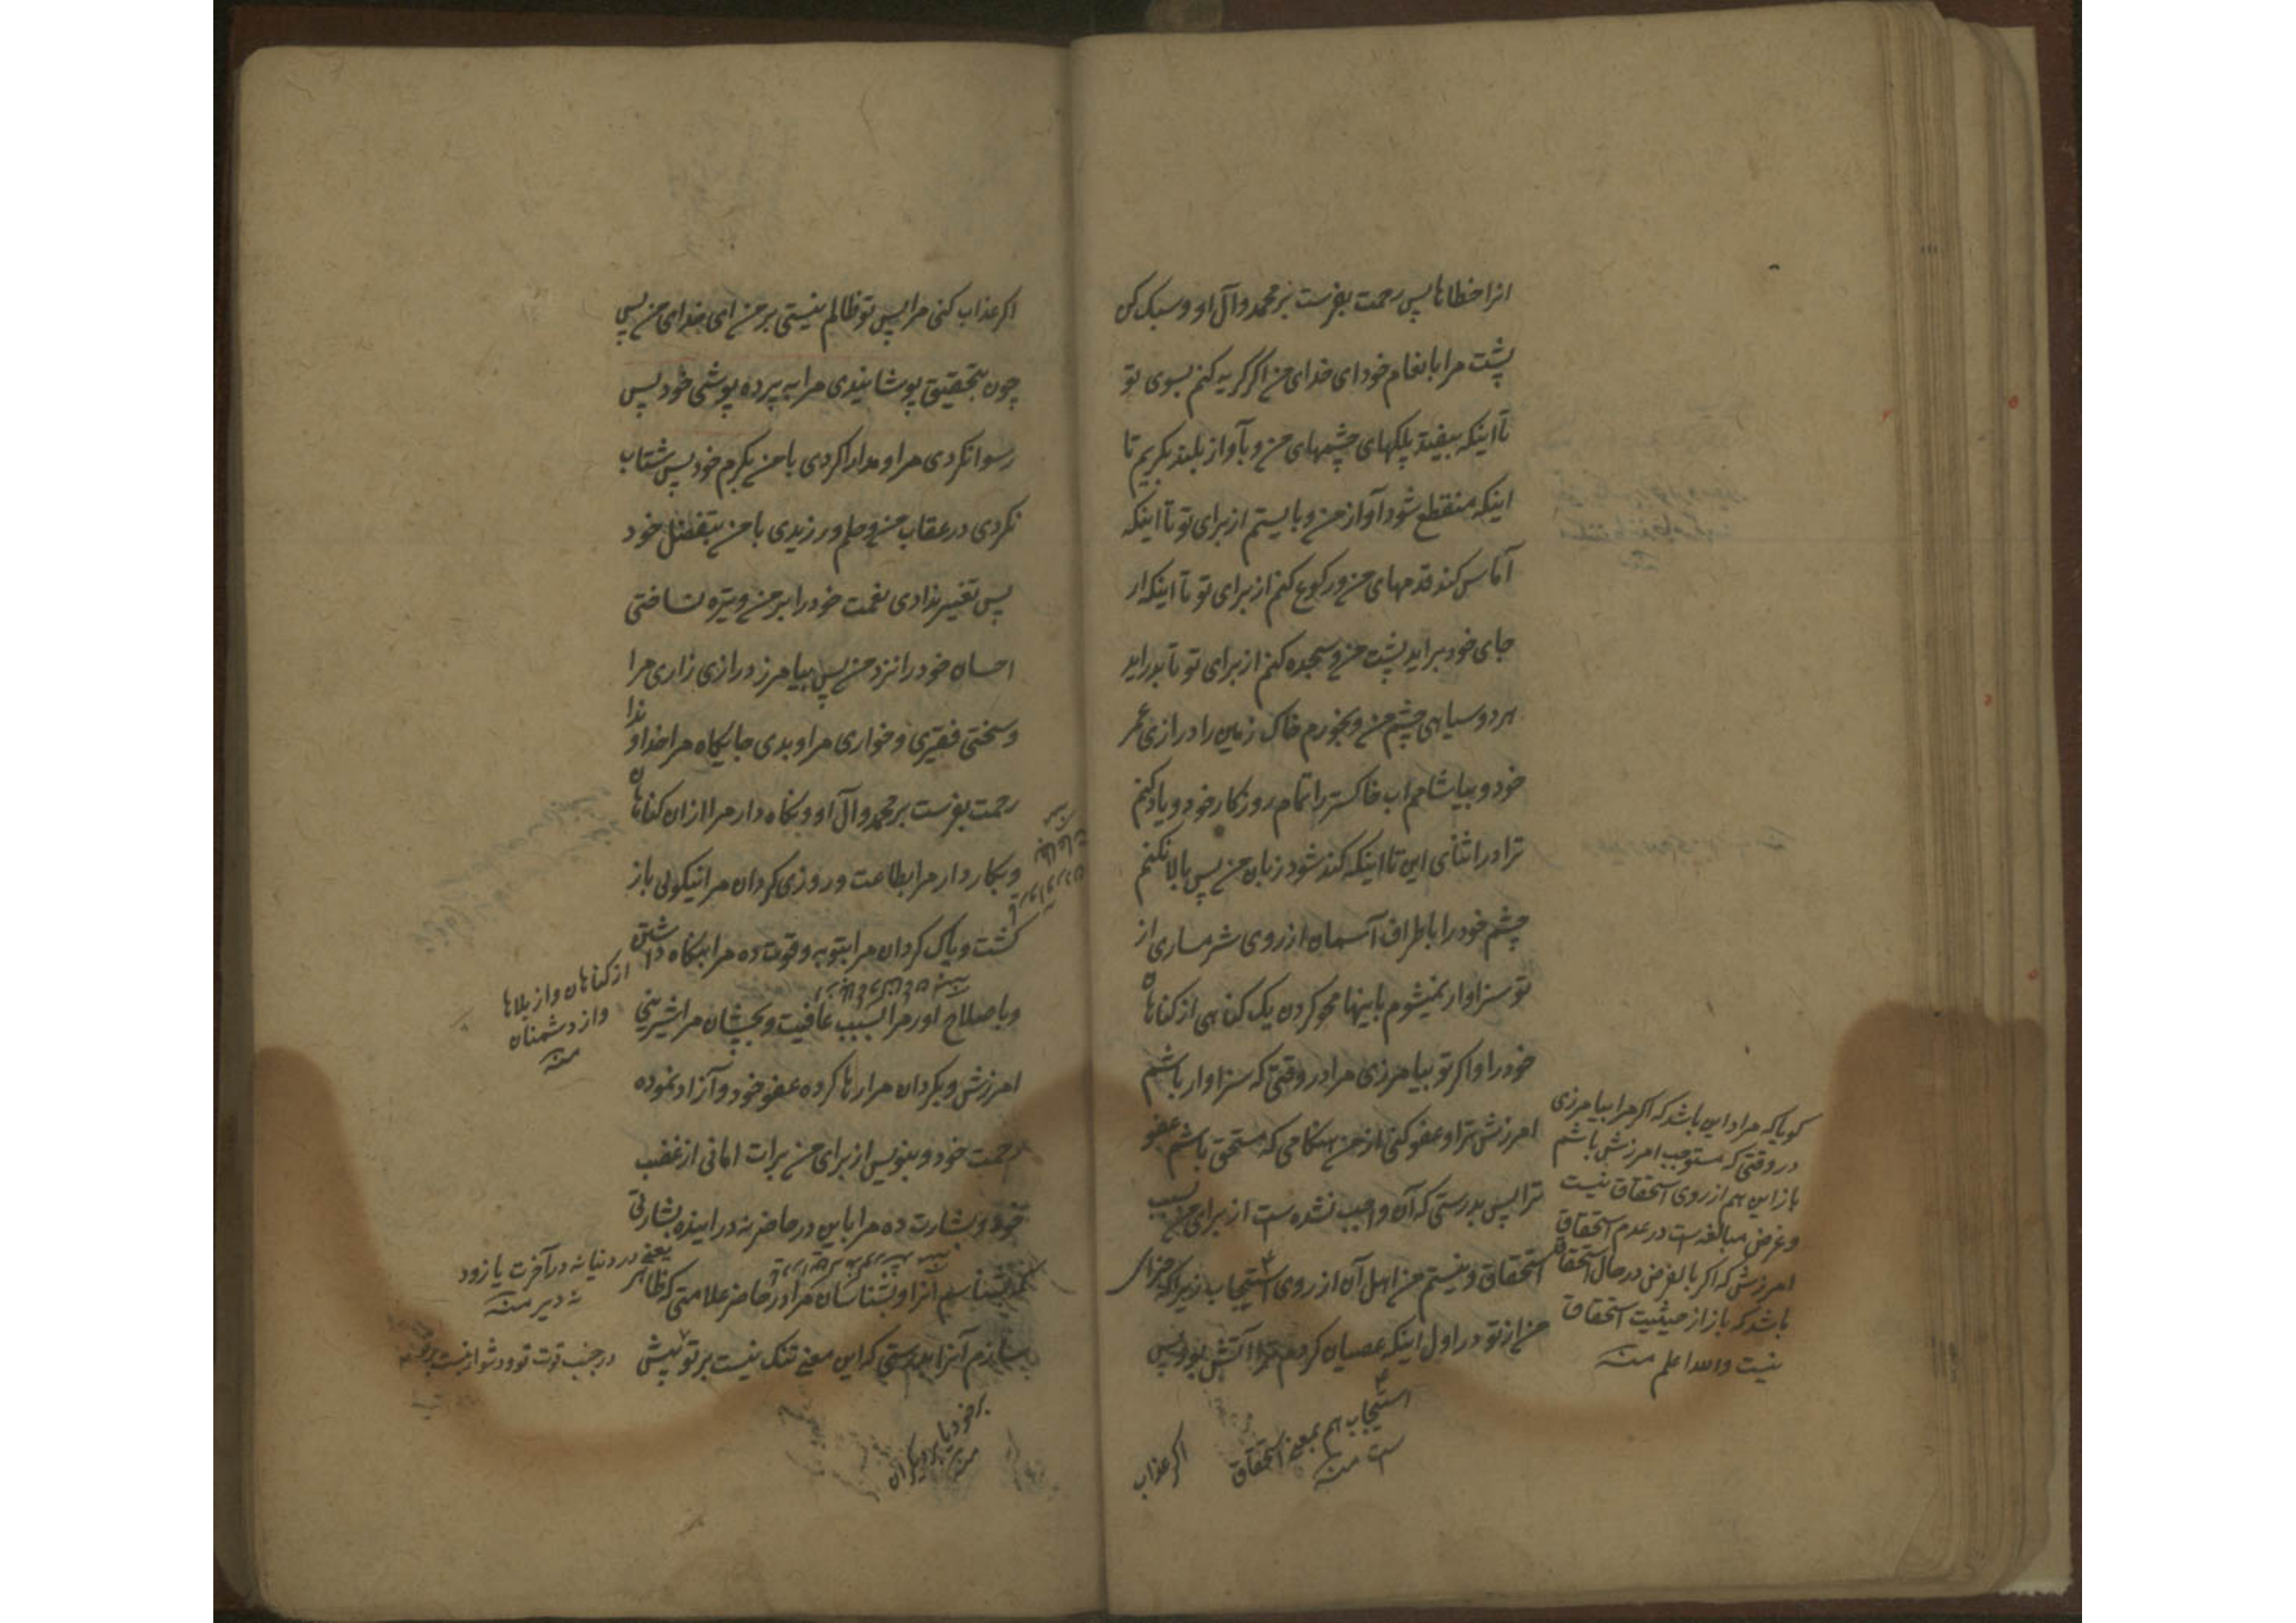 انرا خطاها پس رحمت بفرست بر محمد و آل او و سبک کن
پشت مرا بانعام خود ای خدای من اگر گریه کنم بسوی تو
تا اینکه بیفتد پلکهای چشمهای من و بآواز بلند بگریم تا
اینکه منقطع شود آواز من و بایستم از برای تو تا اینکه
آماس کند قدمهای من و رکوع کنم از برای تو تا اینکه از
جای خود برآید پشت من و سجده کنم از برای تو تا بدراید
هر دو سیاهی چشم من و بخورم خاک زمین را درازی عمر
خود و بیاشامم اب خاکستر را تمام روزگار خود و یاد کنم
ترا در اثنای این تا اینکه کند شود زبان من پس بالا نکنم
چشم خود را باطراف آسمان از روی شرمساری از
تو سزاوار نمیشوم باینها محو کردن یک گناهی از گناهان
خود را و اگر تو بیامرزی مرا در وقتی که سزاوار باشم
امرزش ترا و عفو کنی از من هنگامی که مستحق باشم عفو
ترا پس بدرستی که آن واجب نشده است از برای من بسبب
استحقاق و نیستم من اهل آن از روی استیجاب زیرا که جزای
من از تو در اول اینکه عصیان کردم ترا آتش بود پس
گویا که مراد این باشد که اگر مرا بیامرزی
در وقتی که مستوجب امرزش باشم
باز این هم از روی استحقاق نیست
و غرض مبالغه است در عدم استحقاق
امرزش که اگر بالفرض در حال استحقاق
باشد که باز از حیثیت استحقاق
نیست والله اعلم منه
استیجاب هم بمعنی استحقاق
است منه
اگر عذاب
اگر عذاب کنی مرا پس تو ظالم نیستی بر من ای خدای من پس
چون بتحقیق پوشانیدی مرا به پرده پوشی خود پس
رسوا نکردی مرا و مدارا کردی با من بکرم خود پس شتاب
نکردی در عقاب من و حلم ورزیدی با من بتفضل خود
پس تغییر ندادی نعمت خود را بر من و تیره نساختی
احسان خود را نزد من پس بیامرز درازی زاری مرا
و سختی فقیری و خواری مرا و بدی جایگاه مرا خداوندا
رحمت بفرست بر محمد و آل او و نگاه دار مرا از ان گناهان
و بکار دار مرا بطاعت و روزی گردان مرا نیکوئی باز
گشت و پاک گردان مرا بتوبه و قوت ده مرا بنگاه داشتن
از گناهان و از بلاها
و از دشمنان
منه
و باصلاح اور مرا بسبب عافیت و بچشان مرا شیرینی
امرزش و بگردان مرا رها کرده عفو خود و آزاد نموده
رحمت خود و بنویس از برای من برات امانی از غضب
خود و بشارت ده مرا باین در حاضر نه در اینده بشارتی
یعنی در دنیا نه در آخرت یا زود
نه دیر منه
که بشناسم انرا و بشناسان مرا در حاضر علامتی که ظاهر
سازم آنرا بدرستی که این معنی تنگ نیست بر تو پیش
بر خود یا
بر دیگران
منه